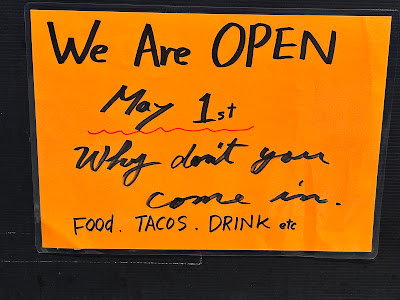 We Are OPEN
May 1st
Why don't you
come in.
FOOd. TACOS. DRINK etc